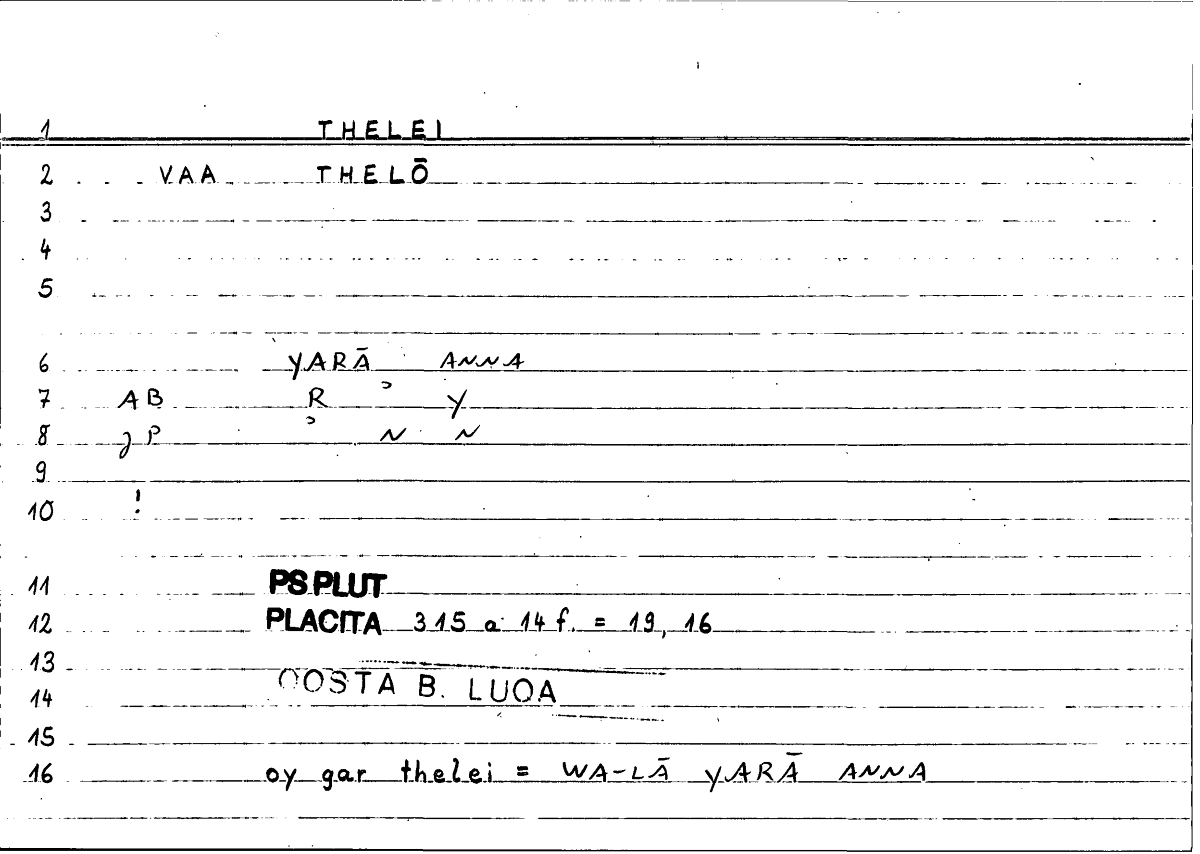 1 THELEI
2 VAA THELŌ
3
4
5
6 YARĀ ANNA
7 AB R ɔ Y
8 P ɔ N N
9
10 !
11 PS.PLUT
12 PLACITA 315 a 14 f. = 19, 16
13
14 QOSTA B. LUQA
15
16 oy gar thelei = WA-LĀ YARĀ ANNA